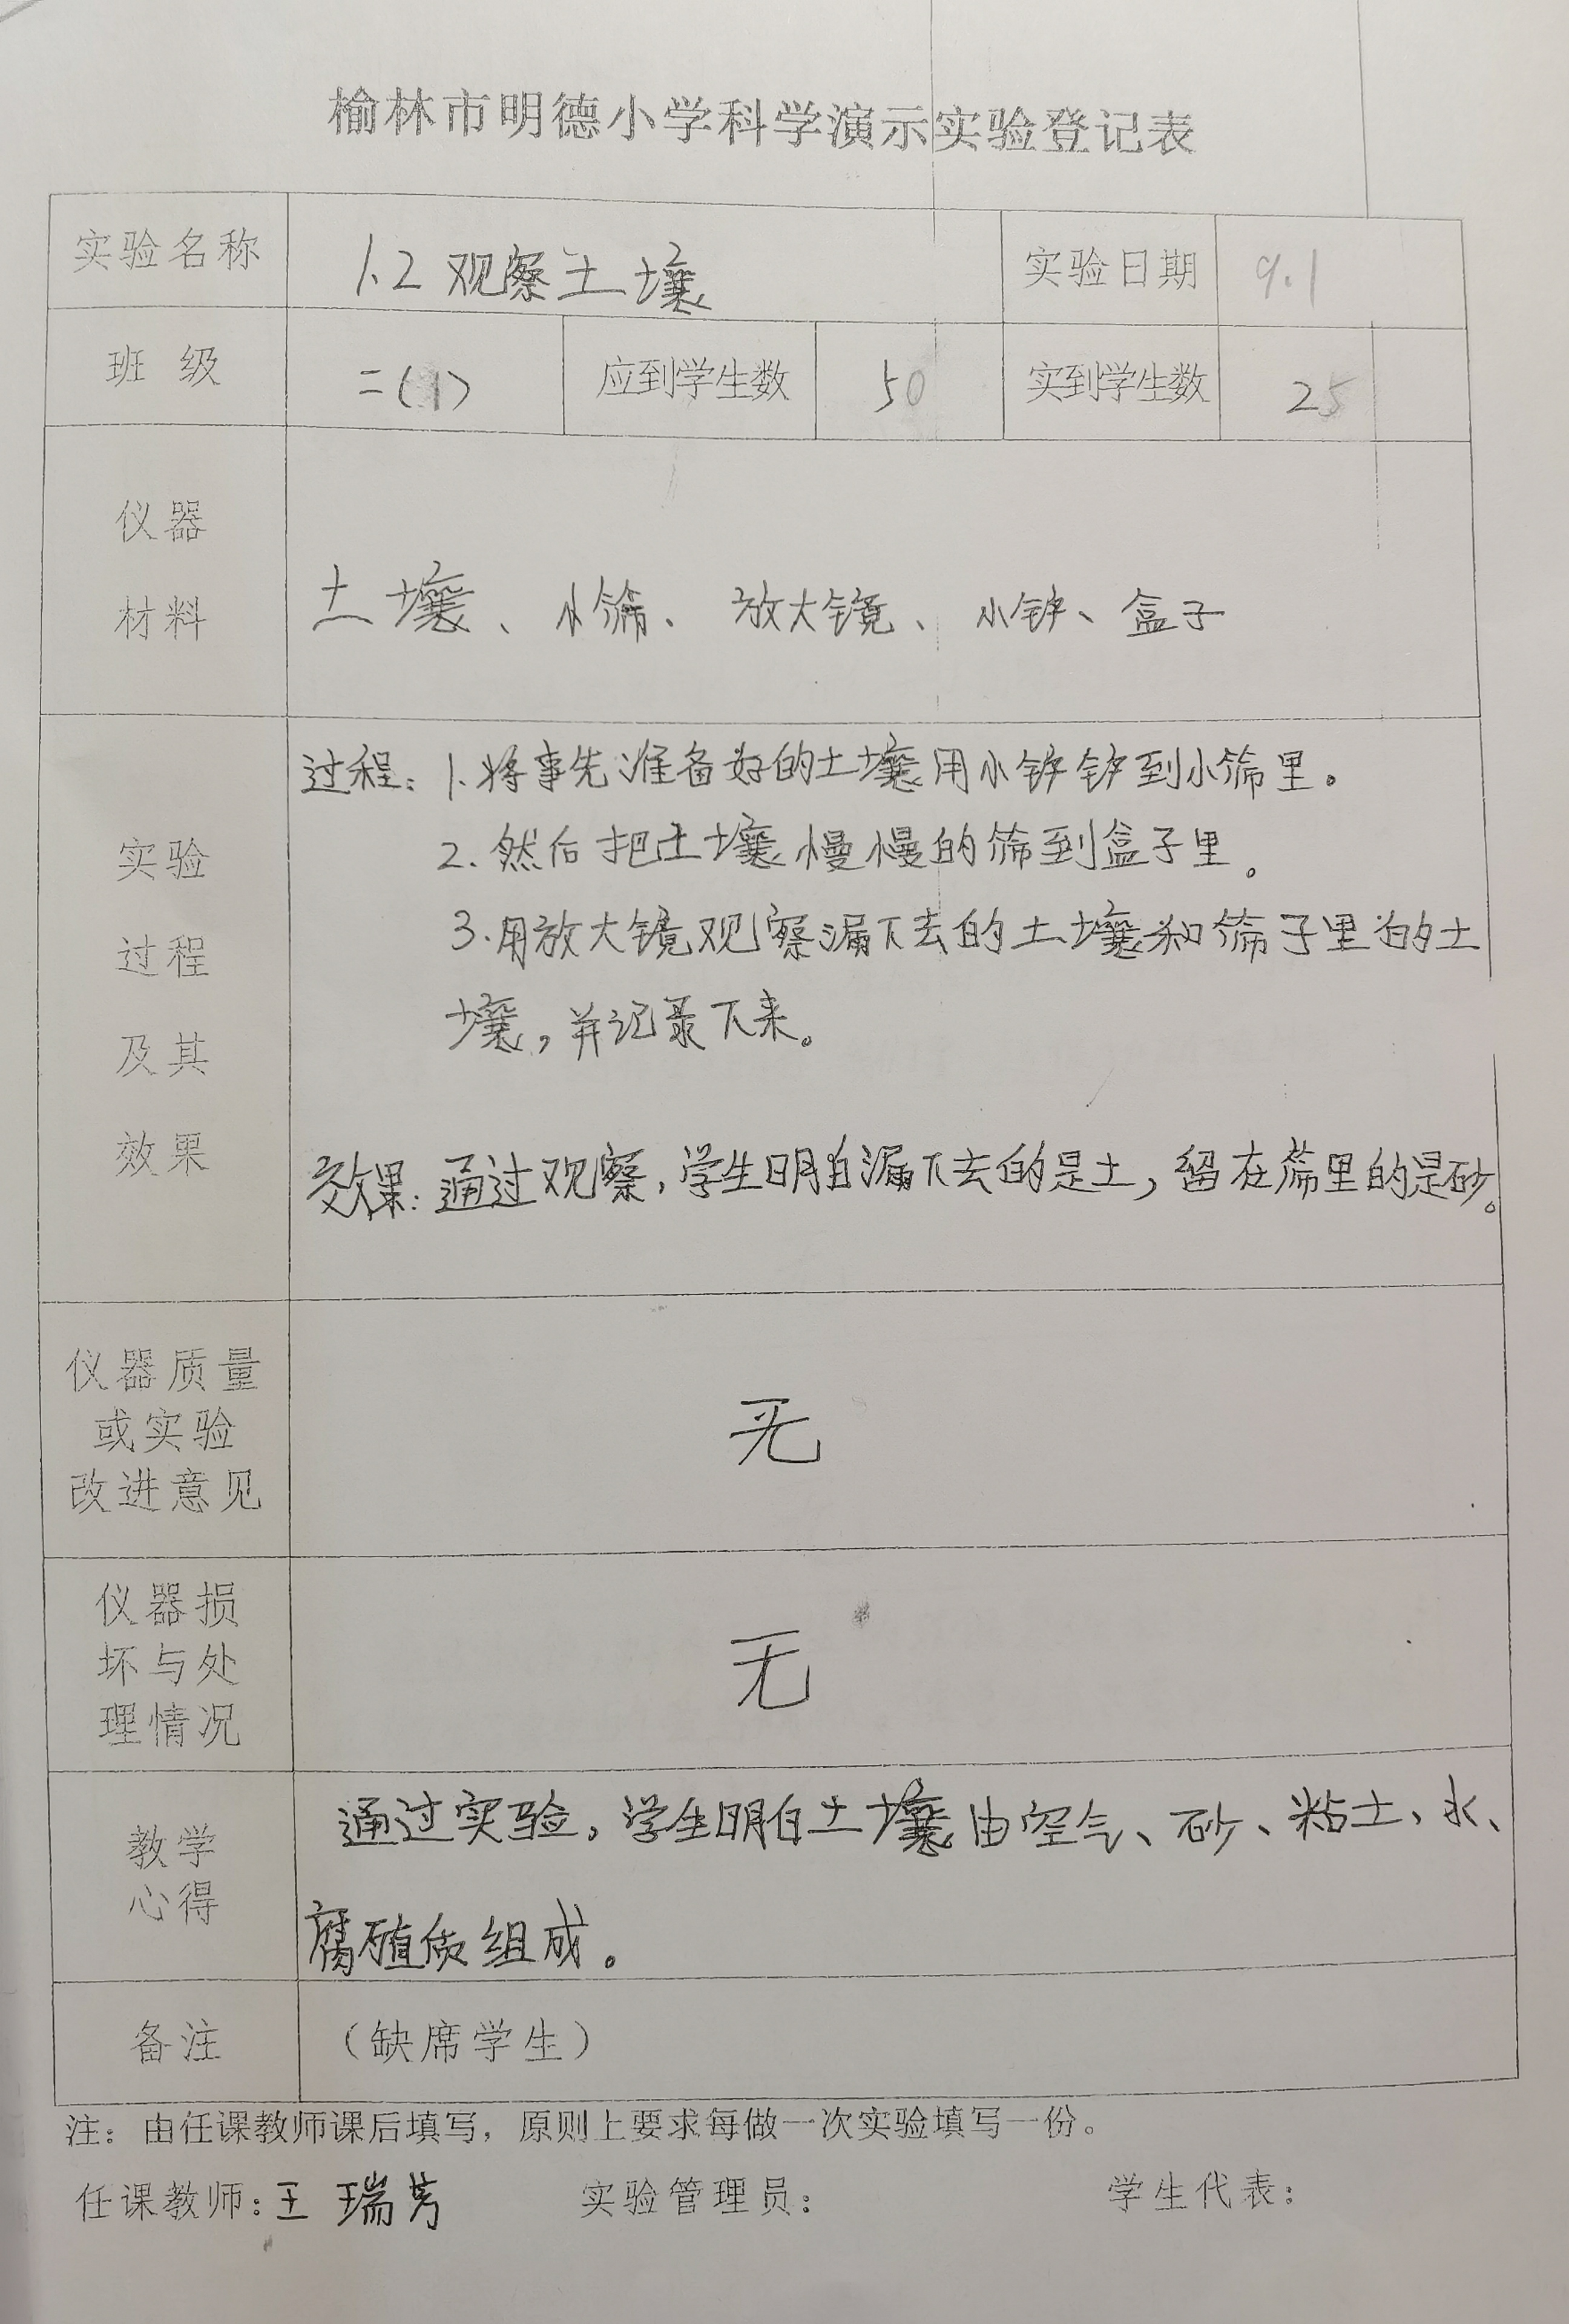 榆林市明德小学科学演示实验登记表
实验名称 1.2 观察土壤 实验日期 9.1
班 级 二(1) 应到学生数 50 实到学生数 25
仪器
材料
土壤、小筛、放大镜、小铲、盒子
实验
过程
及其
效果
过程:1.将事先准备好的土壤用小铲铲到小筛里。
2.然后把土壤慢慢的筛到盒子里。
3.用放大镜观察漏下去的土壤和筛子里的土
壤,并记录下来。
效果:通过观察,学生明白漏下去的是土,留在筛里的是砂。
仪器质量
或实验
改进意见
无
仪器损
坏与处
理情况
无
教学
心得
通过实验,学生明白土壤由空气、砂、粘土、水、
腐殖质组成。
备注 (缺席学生)
注:由任课教师课后填写,原则上要求每做一次实验填写一份。
任课教师:王瑞芳 实验管理员: 学生代表: